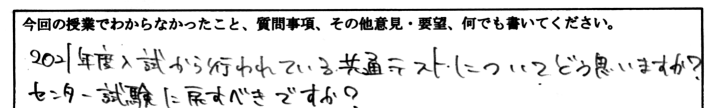 今回の授業でわからなかったこと、質問事項、その他意見・要望、何でも書いてください。
2021年度入試から行われている共通テストについてどう思いますか?
センター試験に戻すべきですか?